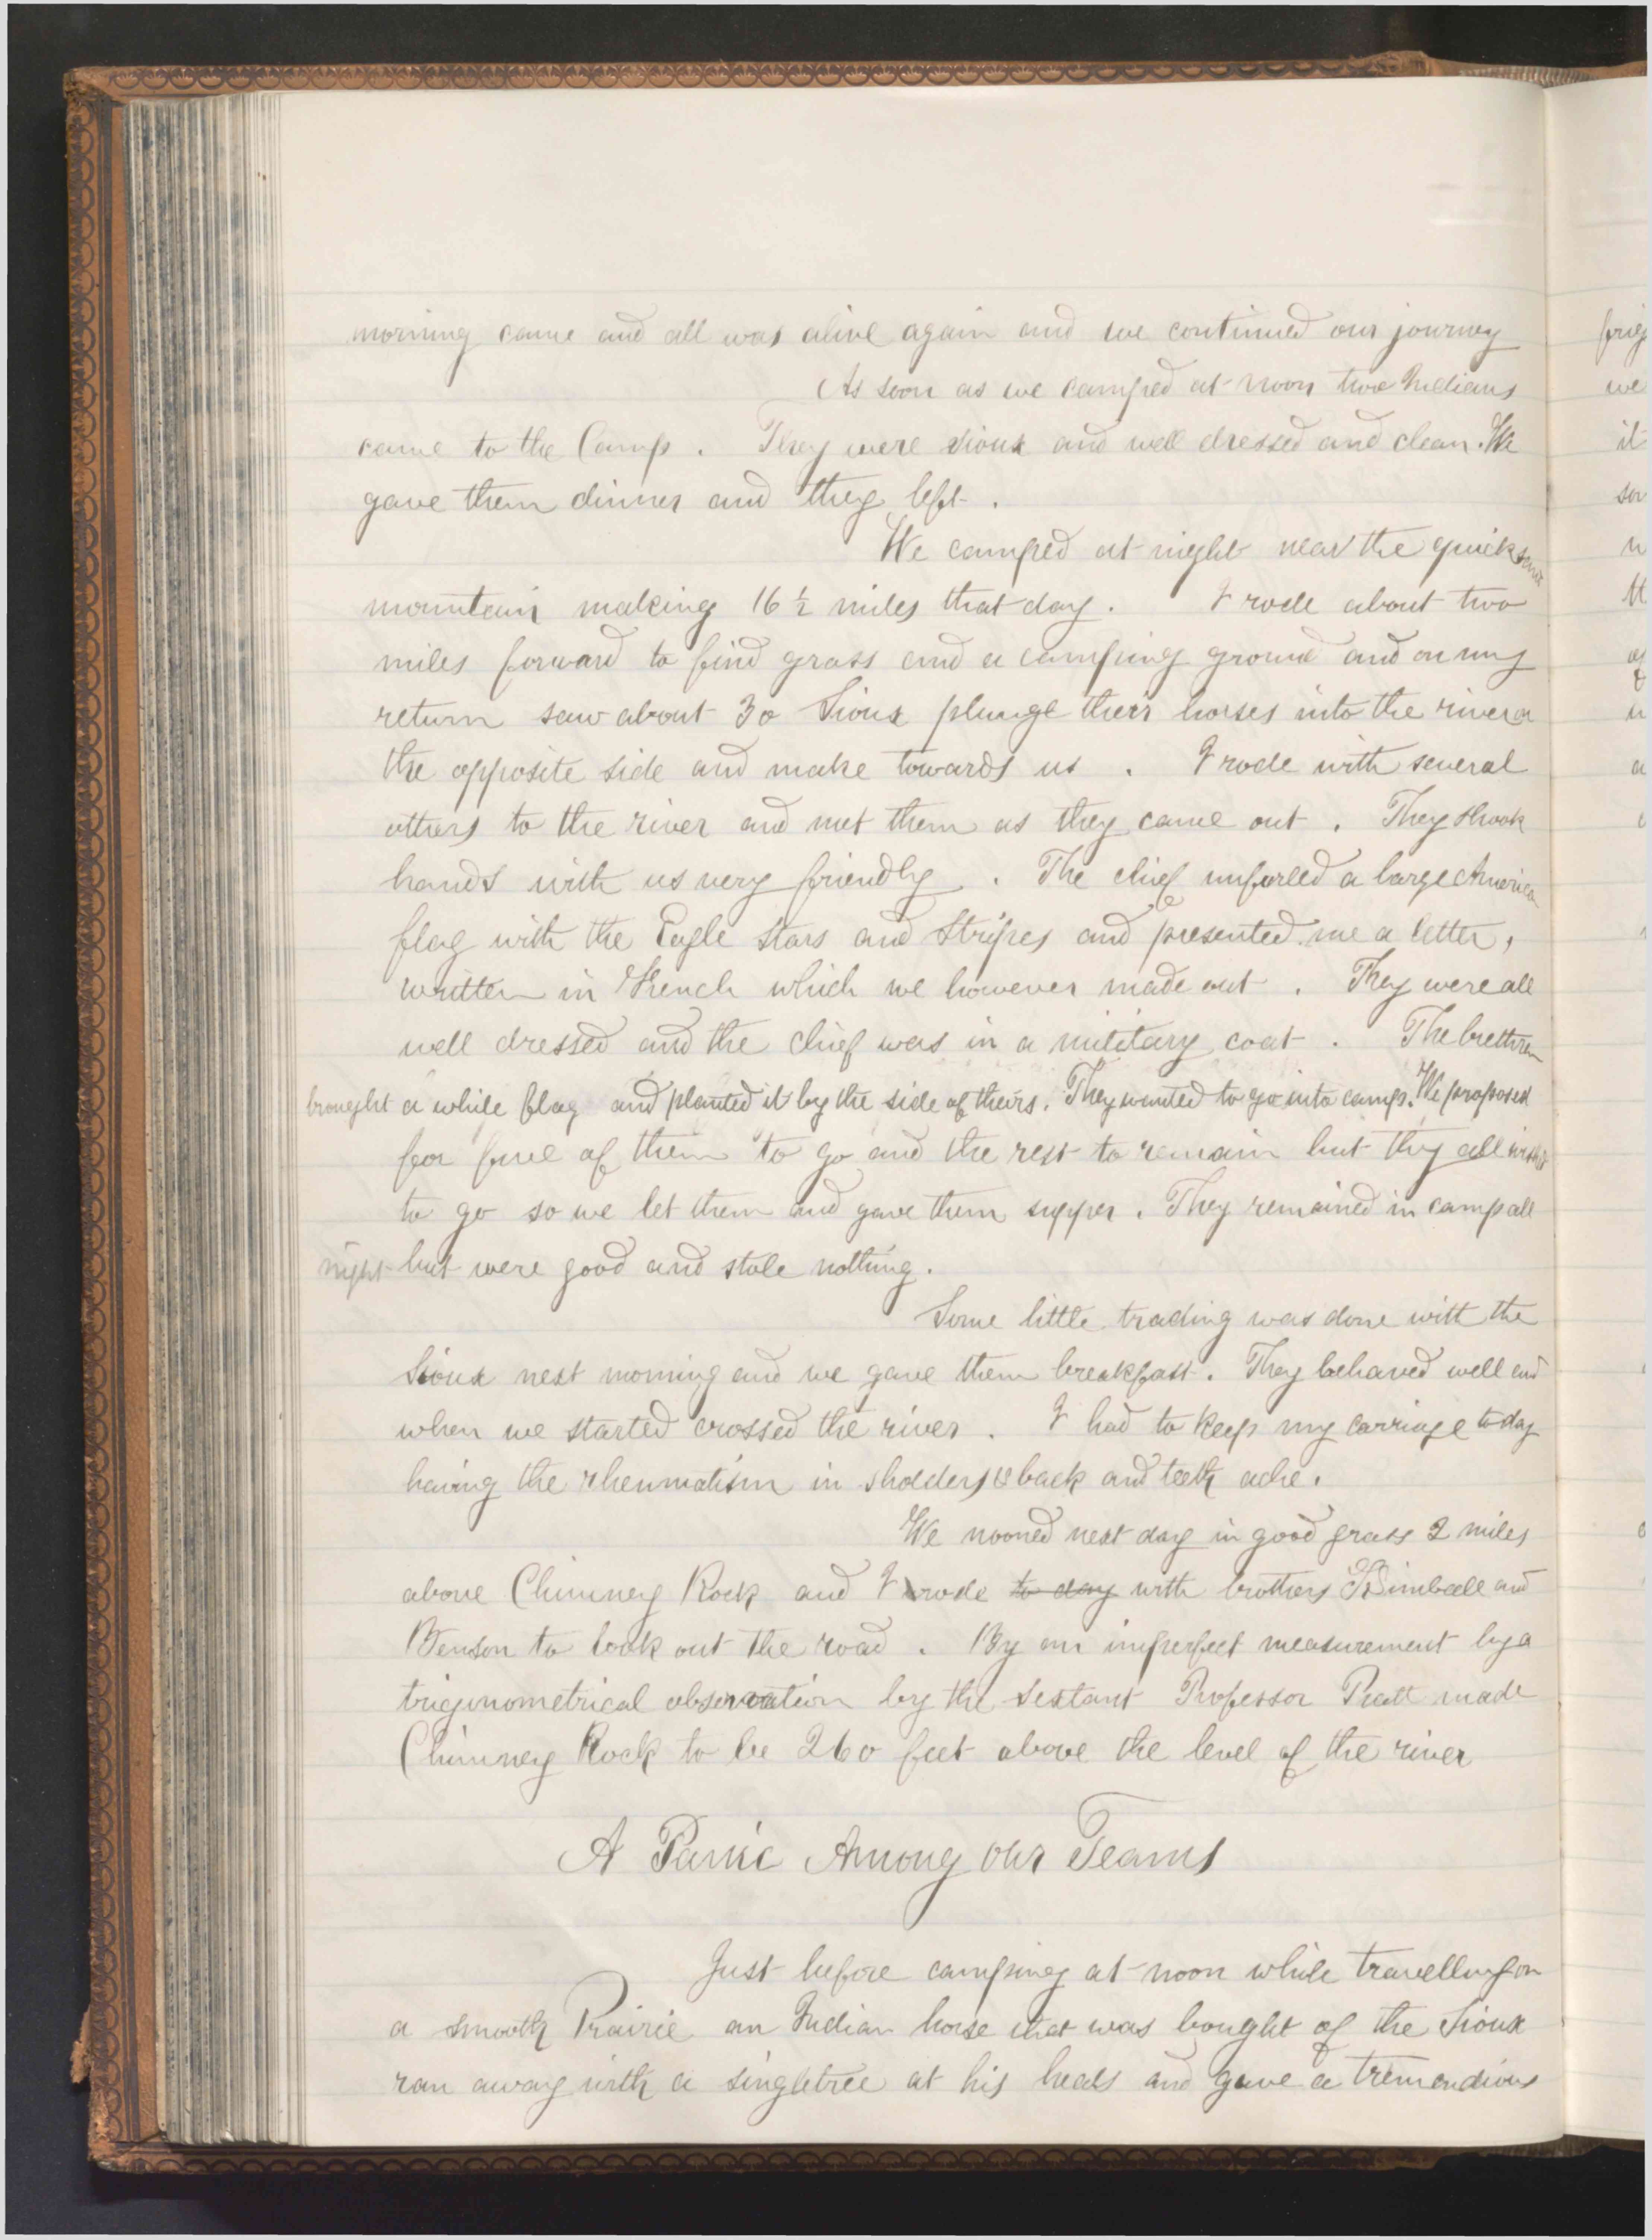 morning came and all was alive again and we continued our journey
As soon as we camped at noon two Indians
came to the Camp. They were Sioux and well dressed and clean. We
gave them dinner and they left.
We camped at night near the quicksand
mountain making 16 1/2 miles that day. I rode about two
miles forward to find grass and a camping ground and on my
return saw about 30 Sioux plunge their horses into the river on
the opposite side and make towards us. I rode with several
others to the river and met them as they came out. They shook
hands with us very friendly. The chief unfurled a large American
flag with the Eagle Stars and Stripes and presented me a letter,
written in French which we however made out. They were all
well dressed and the chief was in a military coat. The brethren
brought a while flag and planted it by the side of theirs. They wanted to go into camp. We proposed
for five of them to go and the rest to remain but they all wished
to go so we let them and gave them supper. They remained in camp all
night but were good and stole nothing.
Some little trading was done with the
Sioux next morning and we gave them breakfast. They behaved well and
when we started crossed the river. I had to keep my carriage to day
having the rheumatism in sholders & back and teeth ache.
We nooned next day in good grass 2 miles
above Chimney Rock and I rode to day with brothers Kimball and
Benson to look out the road. By an imperfect measurement by a
trigonometrical observation by the sextant Professor Pratt made
Chimney Rock to be 260 feet above the level of the river
A Panic Among Our Teams
Just before camping at noon while travelling on
a smooth Prairie an Indian horse that was bought of the Sioux
ran away with a singletree at his heals and gave a tremendious
frig
we
it